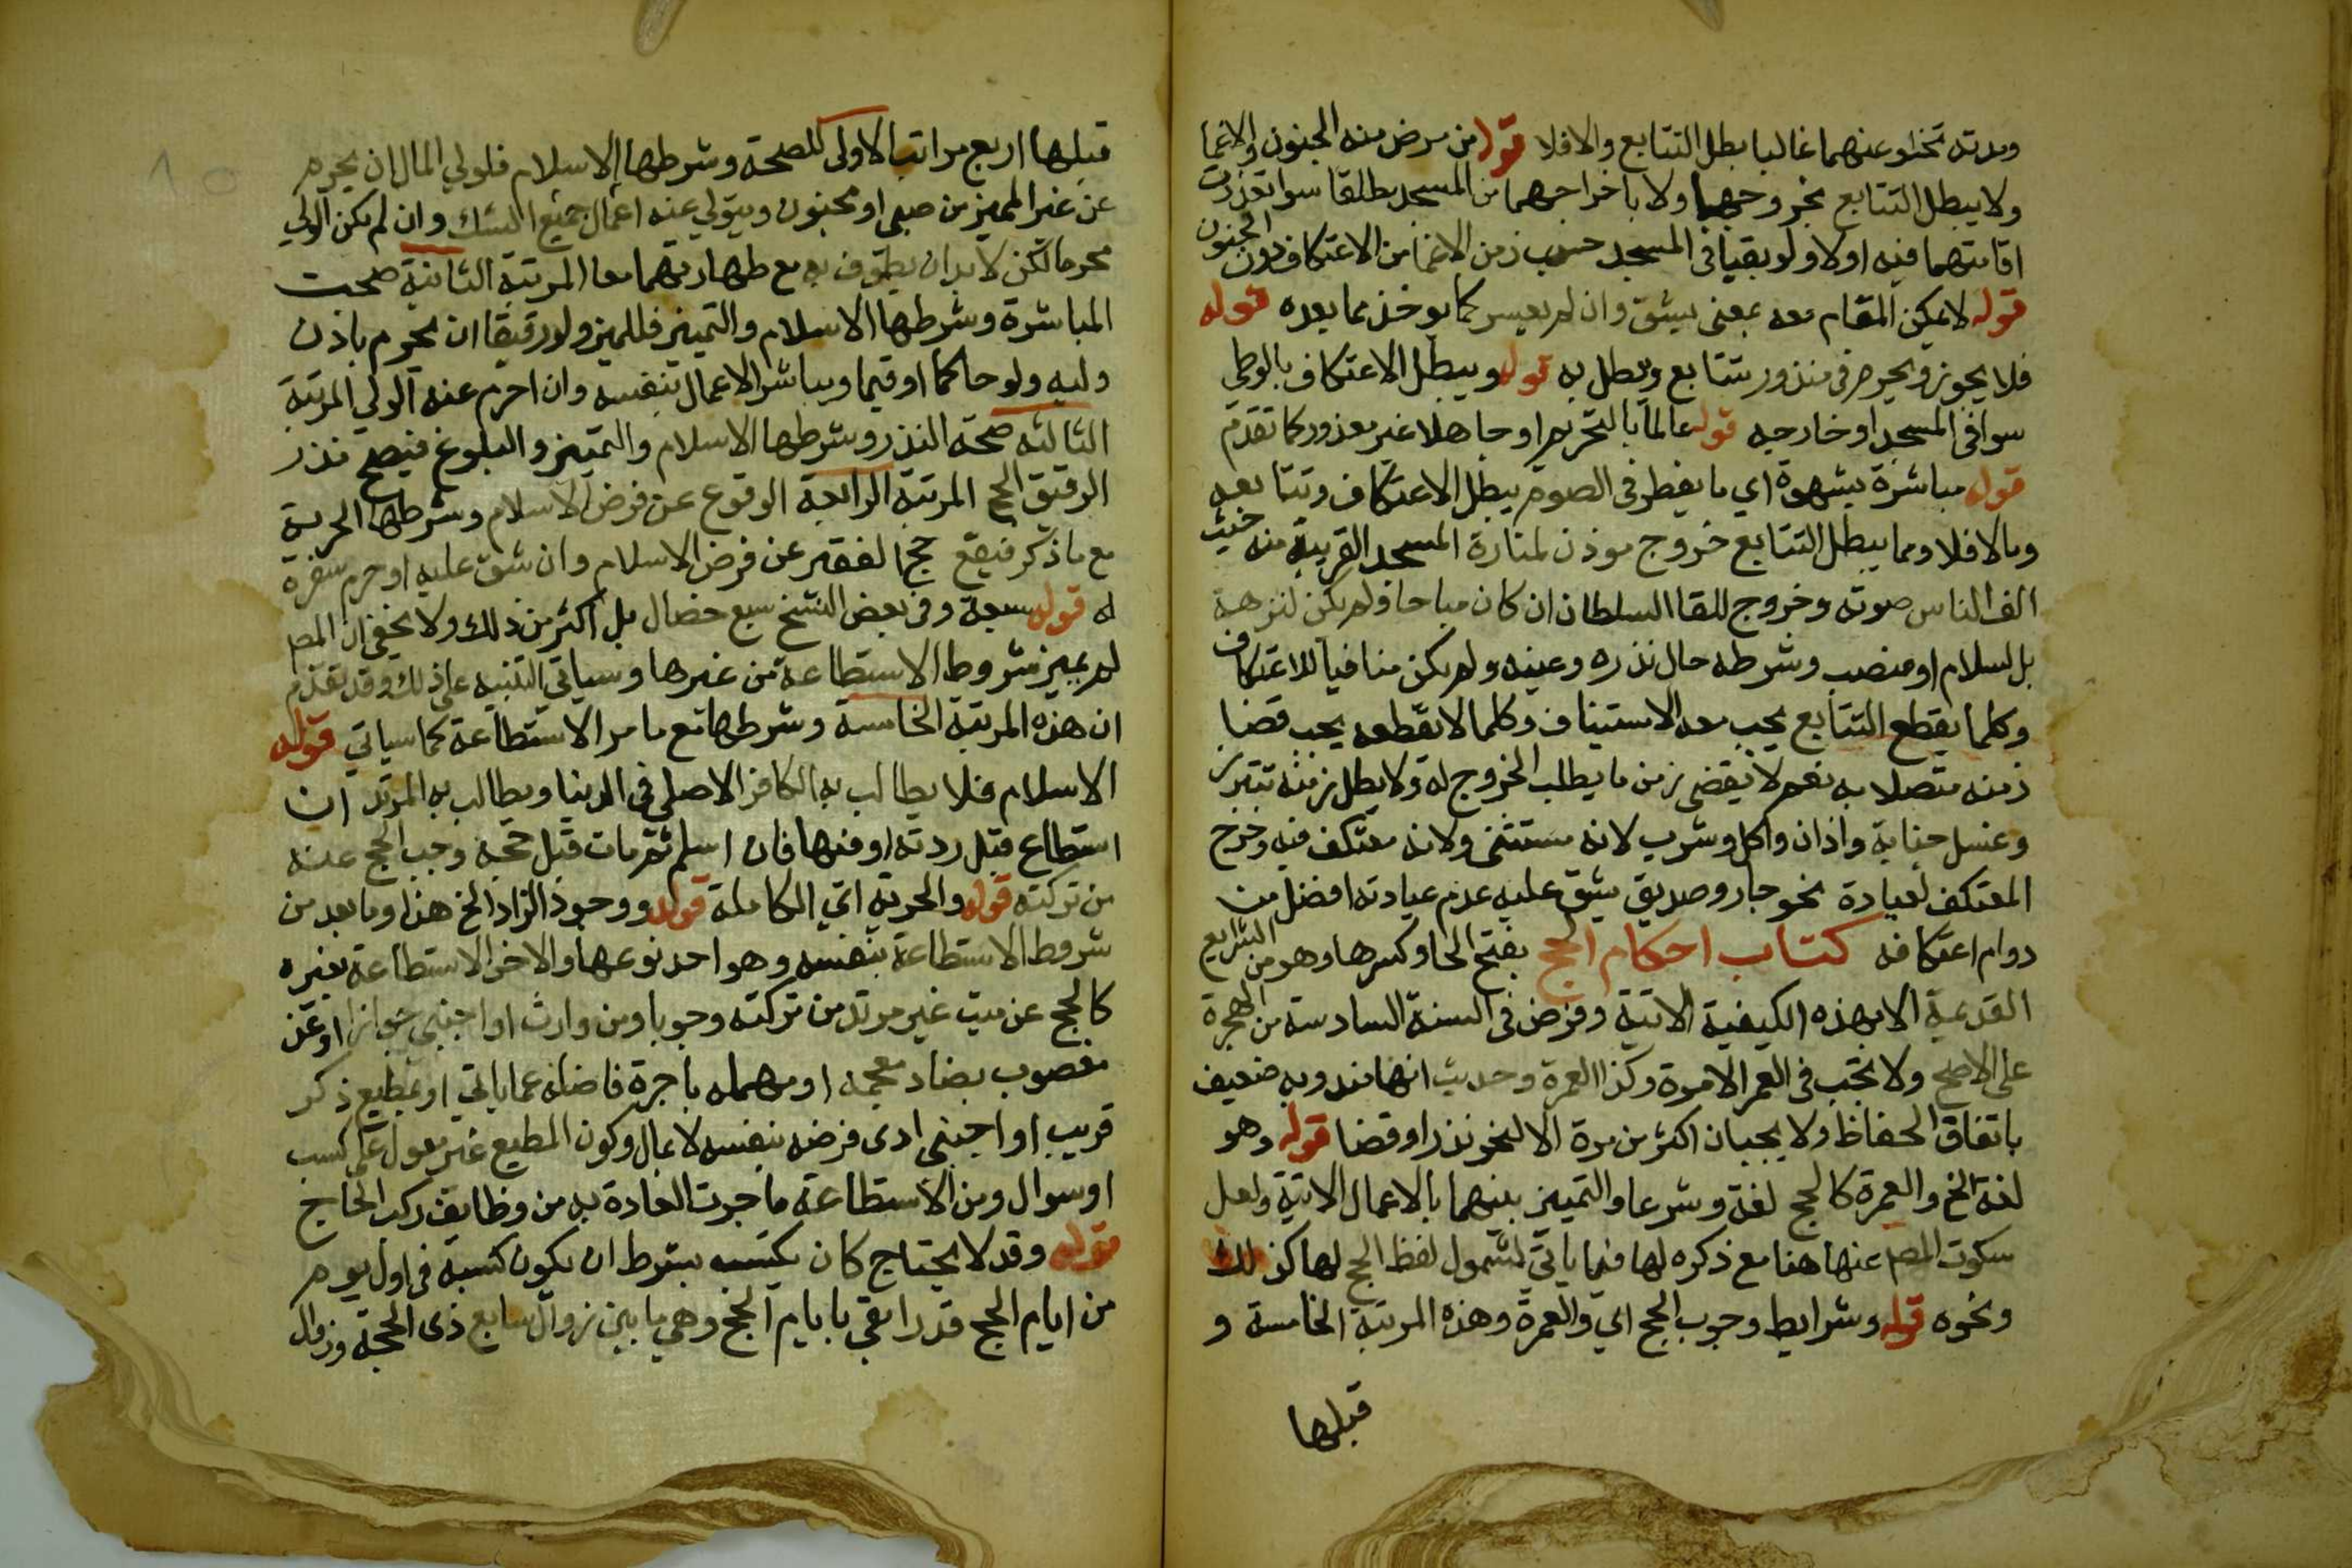 ومدته تخلو عنهما غالبا بطل التتابع والا فلا قوله من مرض منه الجنون والاغما
ولا يبطل التتابع بخروجهما ولا باخراجهما من المسجد مطلقا سوا تعذرت
اقامتهما فيه اولا ولو بقيا في المسجد حسب زمن الاغما من الاعتكاف دون الجنون
قوله لا يمكن المقام معه بمعنى يشق وان لم يعسر كما يوخذ مما بعده قوله
فلا يجوز ويحرم في منذور متتابع ويبطل به قوله ويبطل الاعتكاف بالوطي
سوا في المسجد او خارجه قوله عالما بالتحريم او جاهلا غير معذور كما تقدم
قوله مباشرة بشهوة اي ما يفطر في الصوم يبطل الاعتكاف وتتابعه
وما لا فلا ومما يبطل التتابع خروج موذن لمنارة المسجد القريبة منه حيث
الف الناس صوته وخروج للقا السلطان ان كان مباحا ولم يكن لنزهة
بل لسلام او منصب وشرطه حال نذره وعينه ولم يكن منافيا للاعتكاف
وكلما يقطع التتابع يجب معه الاستيناف وكلما لا يقطعه يجب قضا
زمنه متصلا به نعم لا يقضى زمن ما يطلب الخروج له ولا يطل زمنه كتبرز
وغسل جنابة واذان واكل وشرب لانه مستثنى ولانه معتكف فيه وخرج
المعتكف لعيادة نحو جار وصديق يشق عليه عدم عيادته افضل من
دوام اعتكافه كتاب احكام الحج بفتح الحا وكسرها وهو من الشرايع
القديمة الا بهذه الكيفية الاتية وفرض في السنة السادسة من الهجرة
على الاصح ولا يجب في العمر الا مرة وكذا العمرة وحديث انها مندوبه ضعيف
باتفاق الحفاظ ولا يجبان اكثر من مرة الا لنحو نذر او قضا قوله وهو
لغة الخ والعمرة كالحج لغة وشرعا والتمييز بينهما بالاعمال الاتية ولعل
سكوت المص عنها هنا مع ذكره لها فيما ياتي لشمول لفظ الحج لها كذلك
ونحوه قوله وشرايط وجوب الحج اي والعمرة وهذه المرتبة الخامسة و
قبلها
قبلها اربع مراتب الاولى للصحة وشرطها الاسلام فلولي المال ان يحرم
عن غير المميز من صبي او مجنون ويتولى عنه اعمال جميع النسك وان لم يكن الولي
محرما لكن لا بد ان يطوف به مع طهارتهما معا المرتبة الثانية صحت
المباشرة وشرطها الاسلام والتمييز فللمميز ولو رقيقا ان يحرم باذن
وليه ولو حاكما او قيما ويباشر الاعمال بنفسه وان احرم عنه الولي المرتبة
الثالثه صحة النذر وشرطها الاسلام والتمييز والبلوغ فيصح نذر
الرقيق الحج المرتبة الرابعة الوقوع عن فرض الاسلام وشرطها الحرية
مع ما ذكر فيقع حج الفقير عن فرض الاسلام وان شق عليه او حرم سفره
له قوله سبعة وفي بعض النسخ سبع خصال بل اكثر من ذلك ولا يخفى ان المص
لم يميز شروط الاستطاعة من غيرها وسياتي التنبيه على ذلك وقد تقدم
ان هذه المرتبة الخامسة وشرطها مع ما مر الاستطاعة كما سياتي قوله
الاسلام فلا يطالب به الكافر الاصلي في الدنيا ويطالب به المرتد ان
استطاع قبل ردته او فيها فان اسلم ثم مات قبل حجه وجب الحج عنه
من تركته قوله والحرية اي الكاملة قوله ووجود الزاد الخ هذا وما بعد من
شروط الاستطاعة بنفسه وهو احد نوعيها والاخر الاستطاعة بغيره
كالحج عن ميت غير مرتد من تركته وجوبا ومن وارث او اجنبي جوازا او عن
معضوب بضاد معجمه او مهمله باجرة فاضلة عما ياتي او بمطيع ذكر
قريب او اجنبي ادى فرضه بنفسه لا بمال وكون المطيع غير معول على كسب
او سوال ومن الاستطاعة ما جرت العادة به من وظايف ركب الحاج
قوله وقد لا يحتاج كان يكتسب بشرط ان يكون كسبه في اول يوم
من ايام الحج قدرا يفي بايام الحج وهي ما بين زوال سابع ذى الحجة وزوال